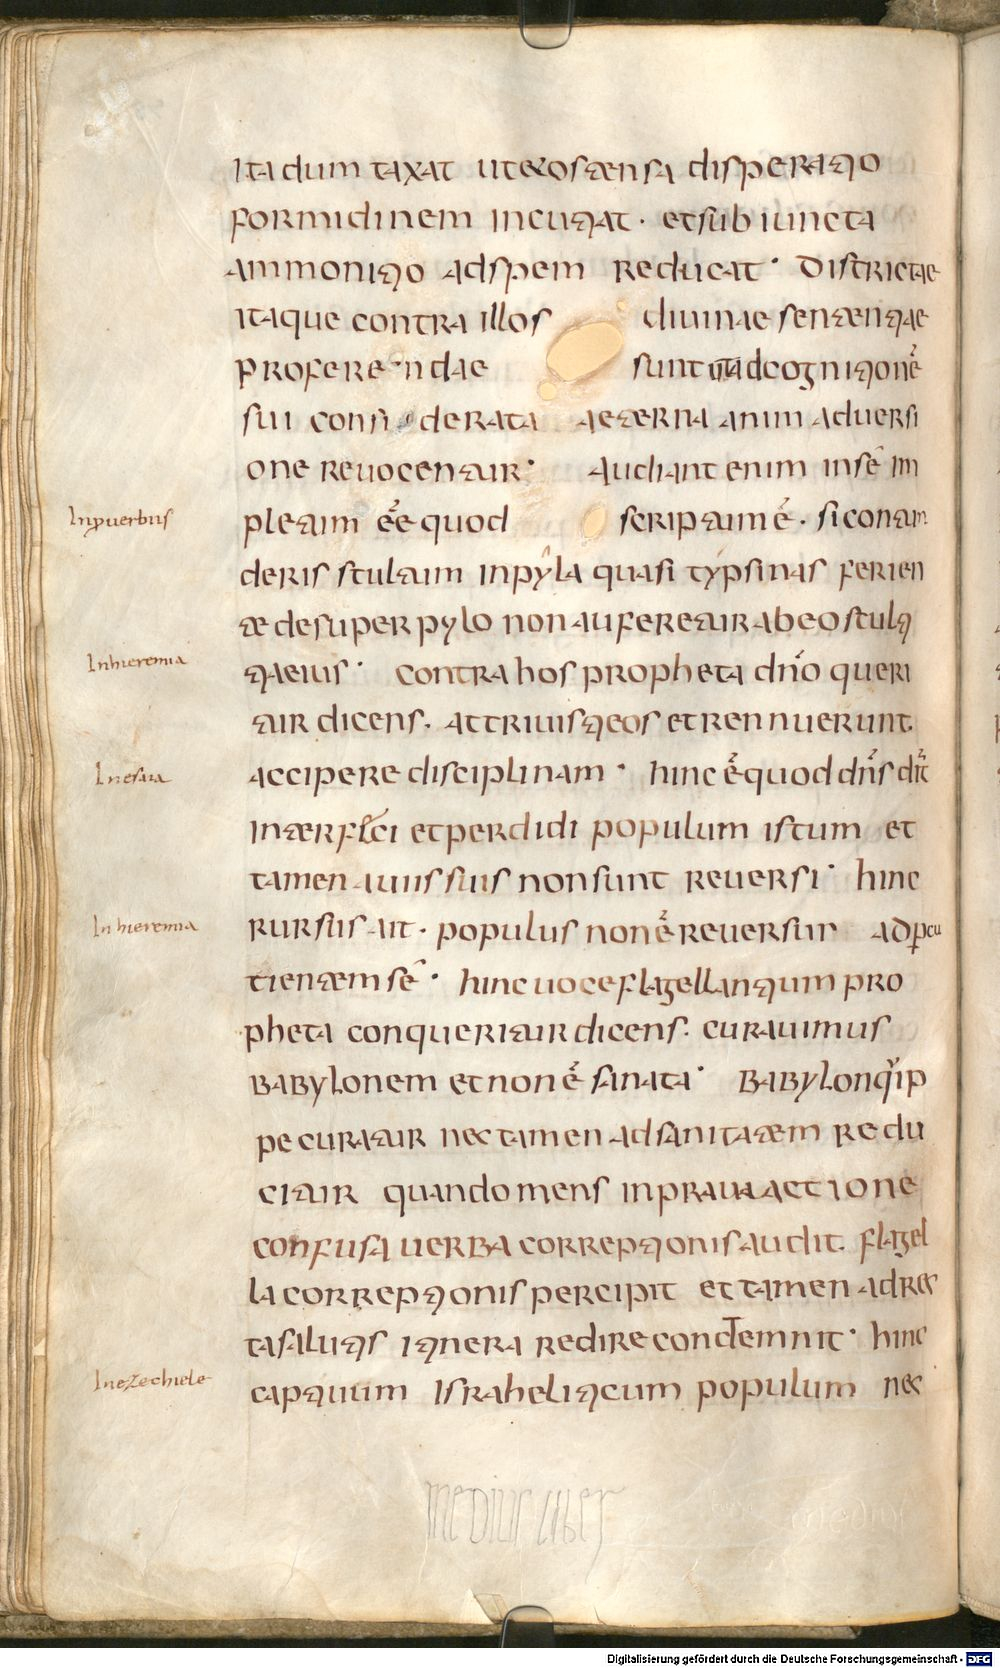 ita dum taxat ut et ostensa disperatio
formidinem incutiat · et subiuncta
ammonitio ad spem reducat · Districtae
itaque contra illos divinae sententiae
proferendae sunt ut ad cognitionē
sui considerata aeterna animadversi
one revocentur · Audiant enim in sē im
Inpuerbiis
pletum eē quod scriptum ē · si contun
deris stultum in pyla quasi typsinas ferien
te desuper pylo non auferetur ab eo stulti
Inhieremia
tia eius · Contra hos propheta dn̄o queri
tur dicens · attrivisti eos et rennuerunt
Inesaia
accipere disciplinam · hinc ē quod dn̄s dīt
interfeci et perdidi populum istum et
tamen a viis suis non sunt reversi · hinc
Inhieremia
rursus ait · populus non ē reversus ad pcu
tientem sē · hinc voce flagellantium pro
pheta conqueritur dicens · curavimus
Babylonem et non ē sanata · Babylon qīp
pe curatur nec tamen ad sanitatem redu
citur quando mens in prava actione
confusa verba correptionis audit flagel
la correptionis percipit et tamen ad rec
ta salutis itinera redire contemnit · hinc
Inezechiele
captivum israheliticum populum nec
medius liber
Digitalisierung gefördert durch die Deutsche Forschungsgemeinschaft - DFG